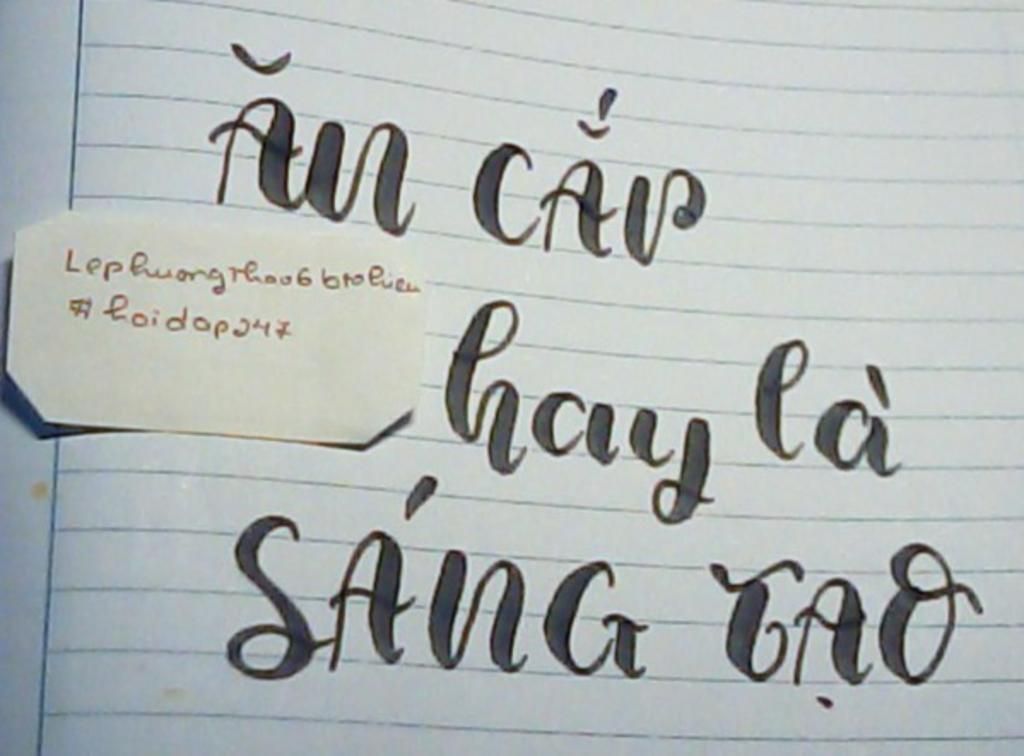 ĂN CẮP
Lephuongthao6btohieu
#hoidap247
hay là
SÁNG TẠO